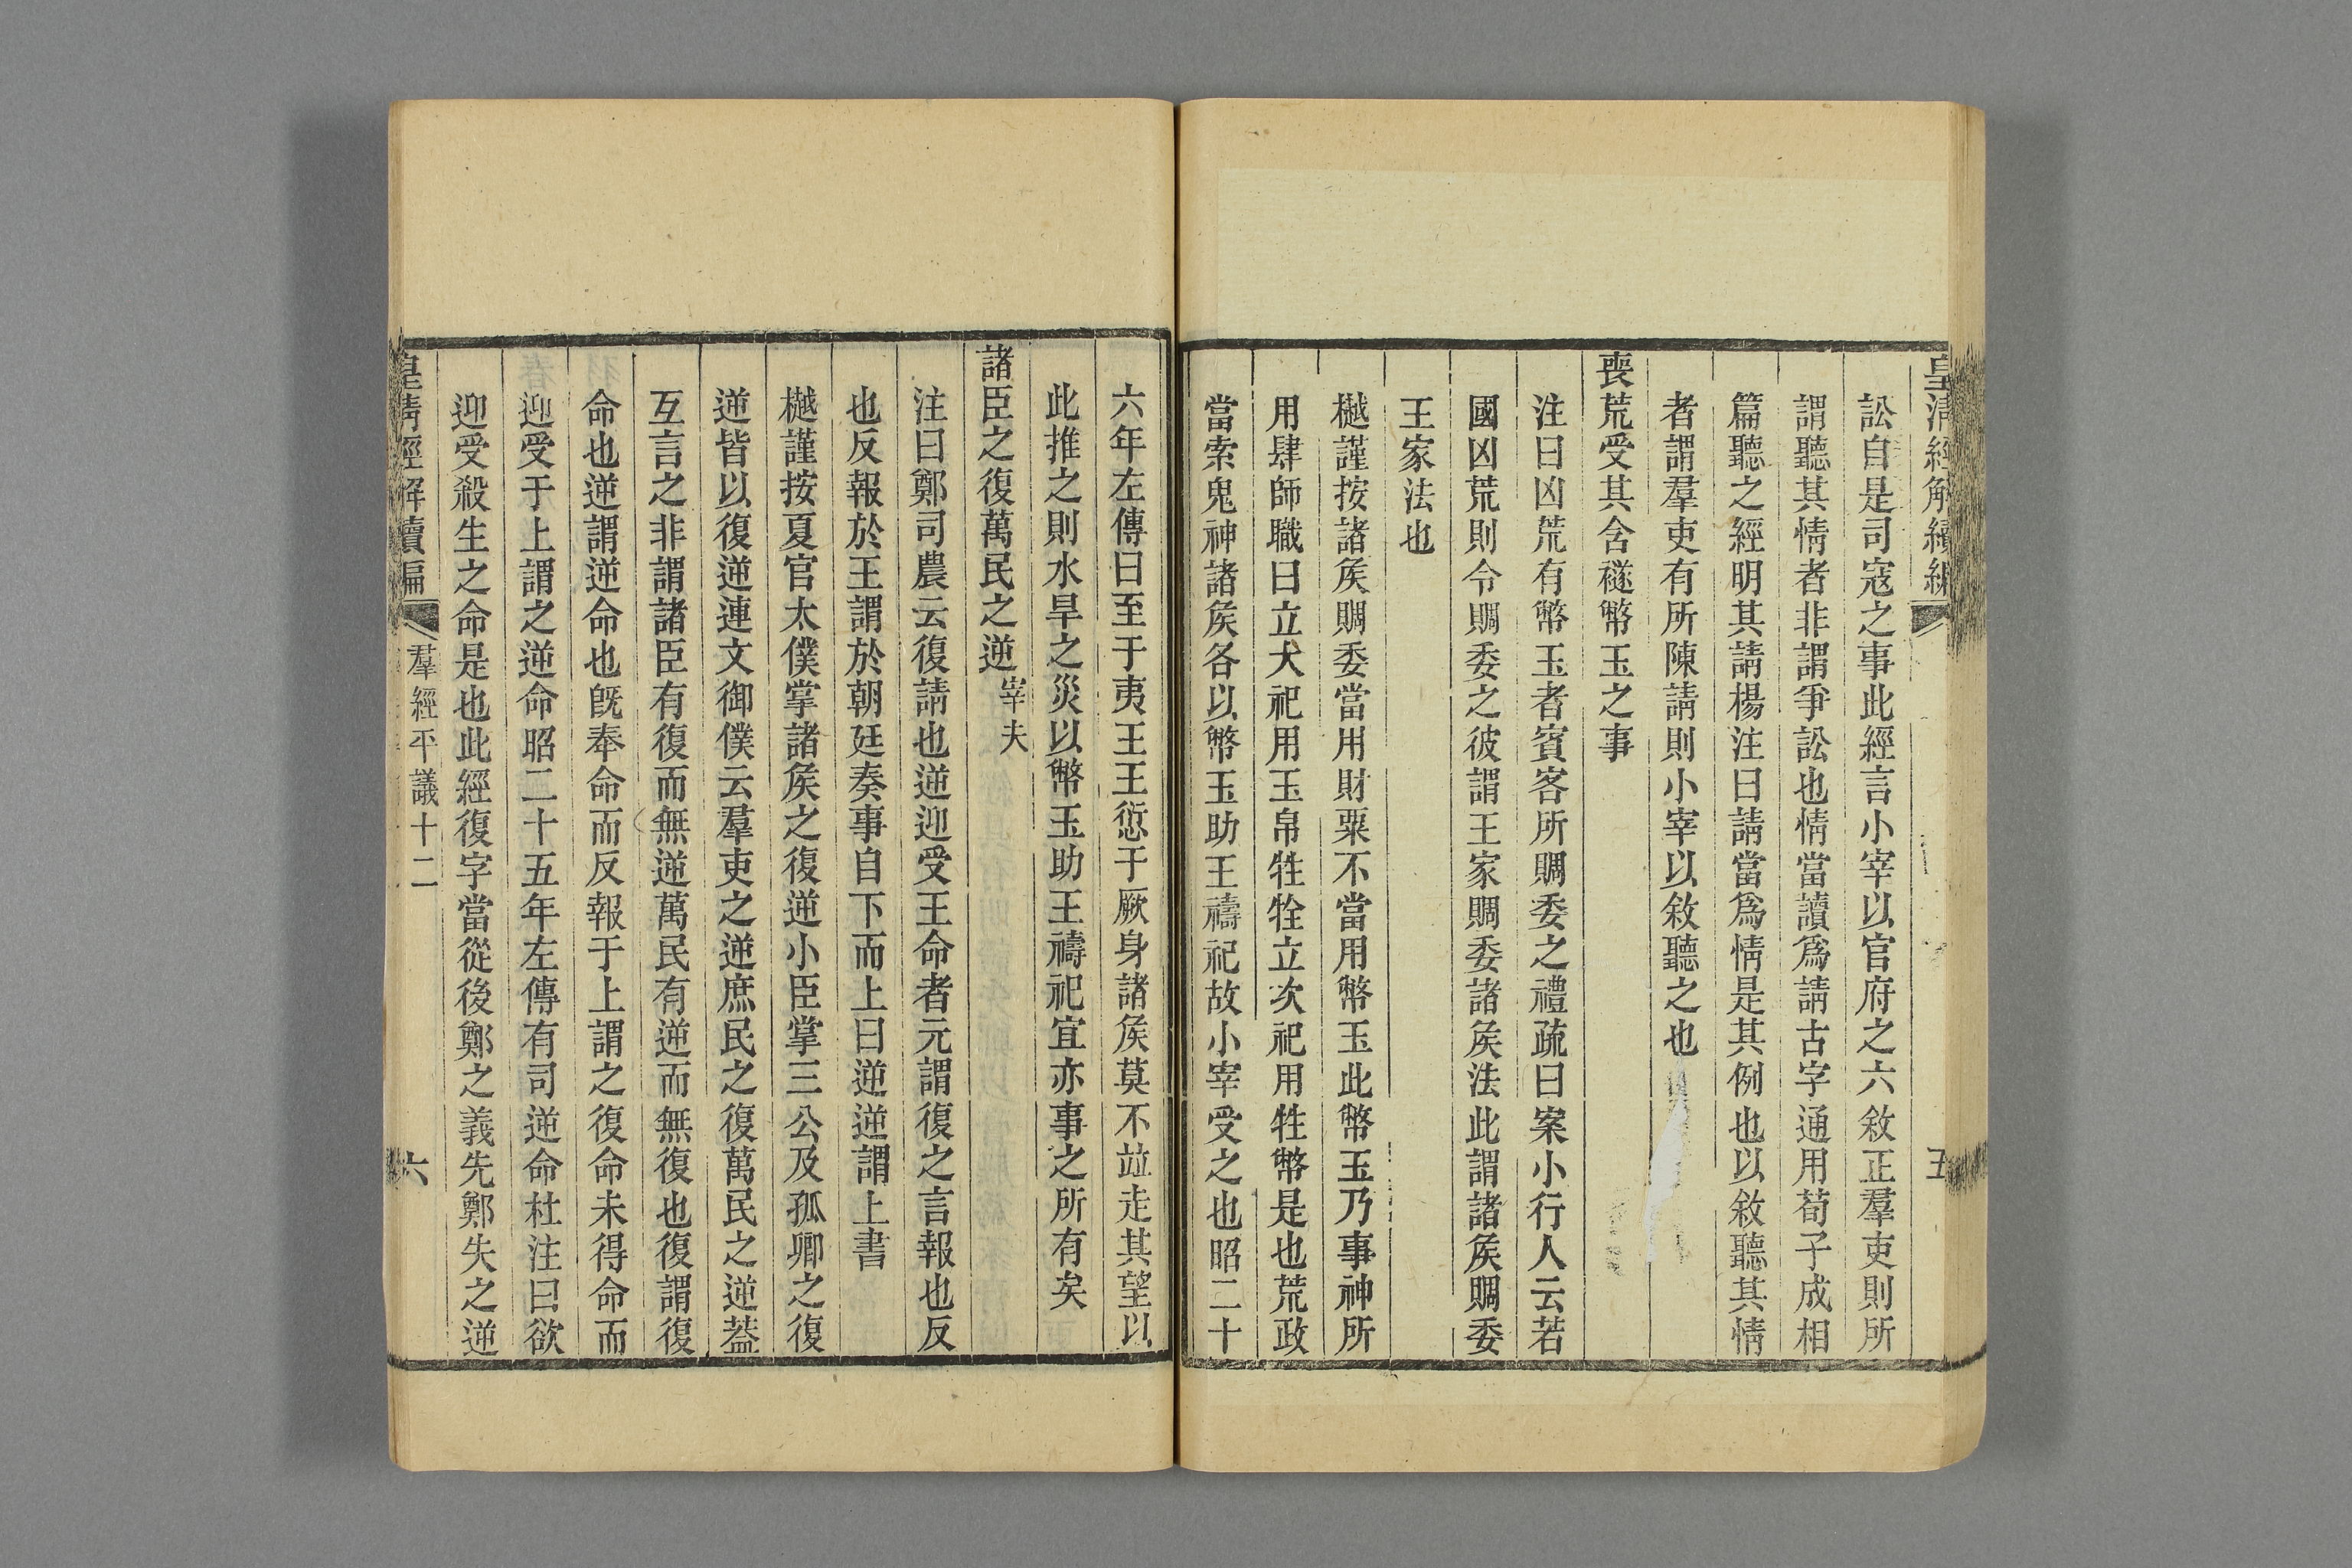 皇清經解續編 五
訟自是司寇之事此經言小宰以官府之六敘正羣吏則所
謂聽其情者非謂爭訟也情當讀爲請古字通用荀子成相
篇聽之經明其請楊注曰請當爲情是其例也以敘聽其情
者謂羣吏有所陳請則小宰以敘聽之也
喪荒受其含襚幣玉之事
注曰凶荒有幣玉者賓客所賙委之禮疏曰案小行人云若
國凶荒則令賙委之彼謂王家賙委諸矦法此謂諸矦賙委
王家法也
樾謹按諸矦賙委當用財粟不當用幣玉此幣玉乃事神所
用肆師職曰立大祀用玉帛牲牷立次祀用牲幣是也荒政
當索鬼神諸矦各以幣玉助王禱祀故小宰受之也昭二十
六年左傳曰至于夷王王愆于厥身諸矦莫不竝走其望以
此推之則水旱之災以幣玉助王禱祀宜亦事之所有矣
諸臣之復萬民之逆宰夫
注曰鄭司農云復請也逆迎受王命者元謂復之言報也反
也反報於王謂於朝廷奏事自下而上曰逆逆謂上書
樾謹按夏官太僕掌諸矦之復逆小臣掌三公及孤卿之復
逆皆以復逆連文御僕云羣吏之逆庶民之復萬民之逆葢
互言之非謂諸臣有復而無逆萬民有逆而無復也復謂復
命也逆謂逆命也旣奉命而反報于上謂之復命未得命而
迎受于上謂之逆命昭二十五年左傳有司逆命杜注曰欲
迎受殺生之命是也此經復字當從後鄭之義先鄭失之逆
皇清經解續編 羣經平議十二 六